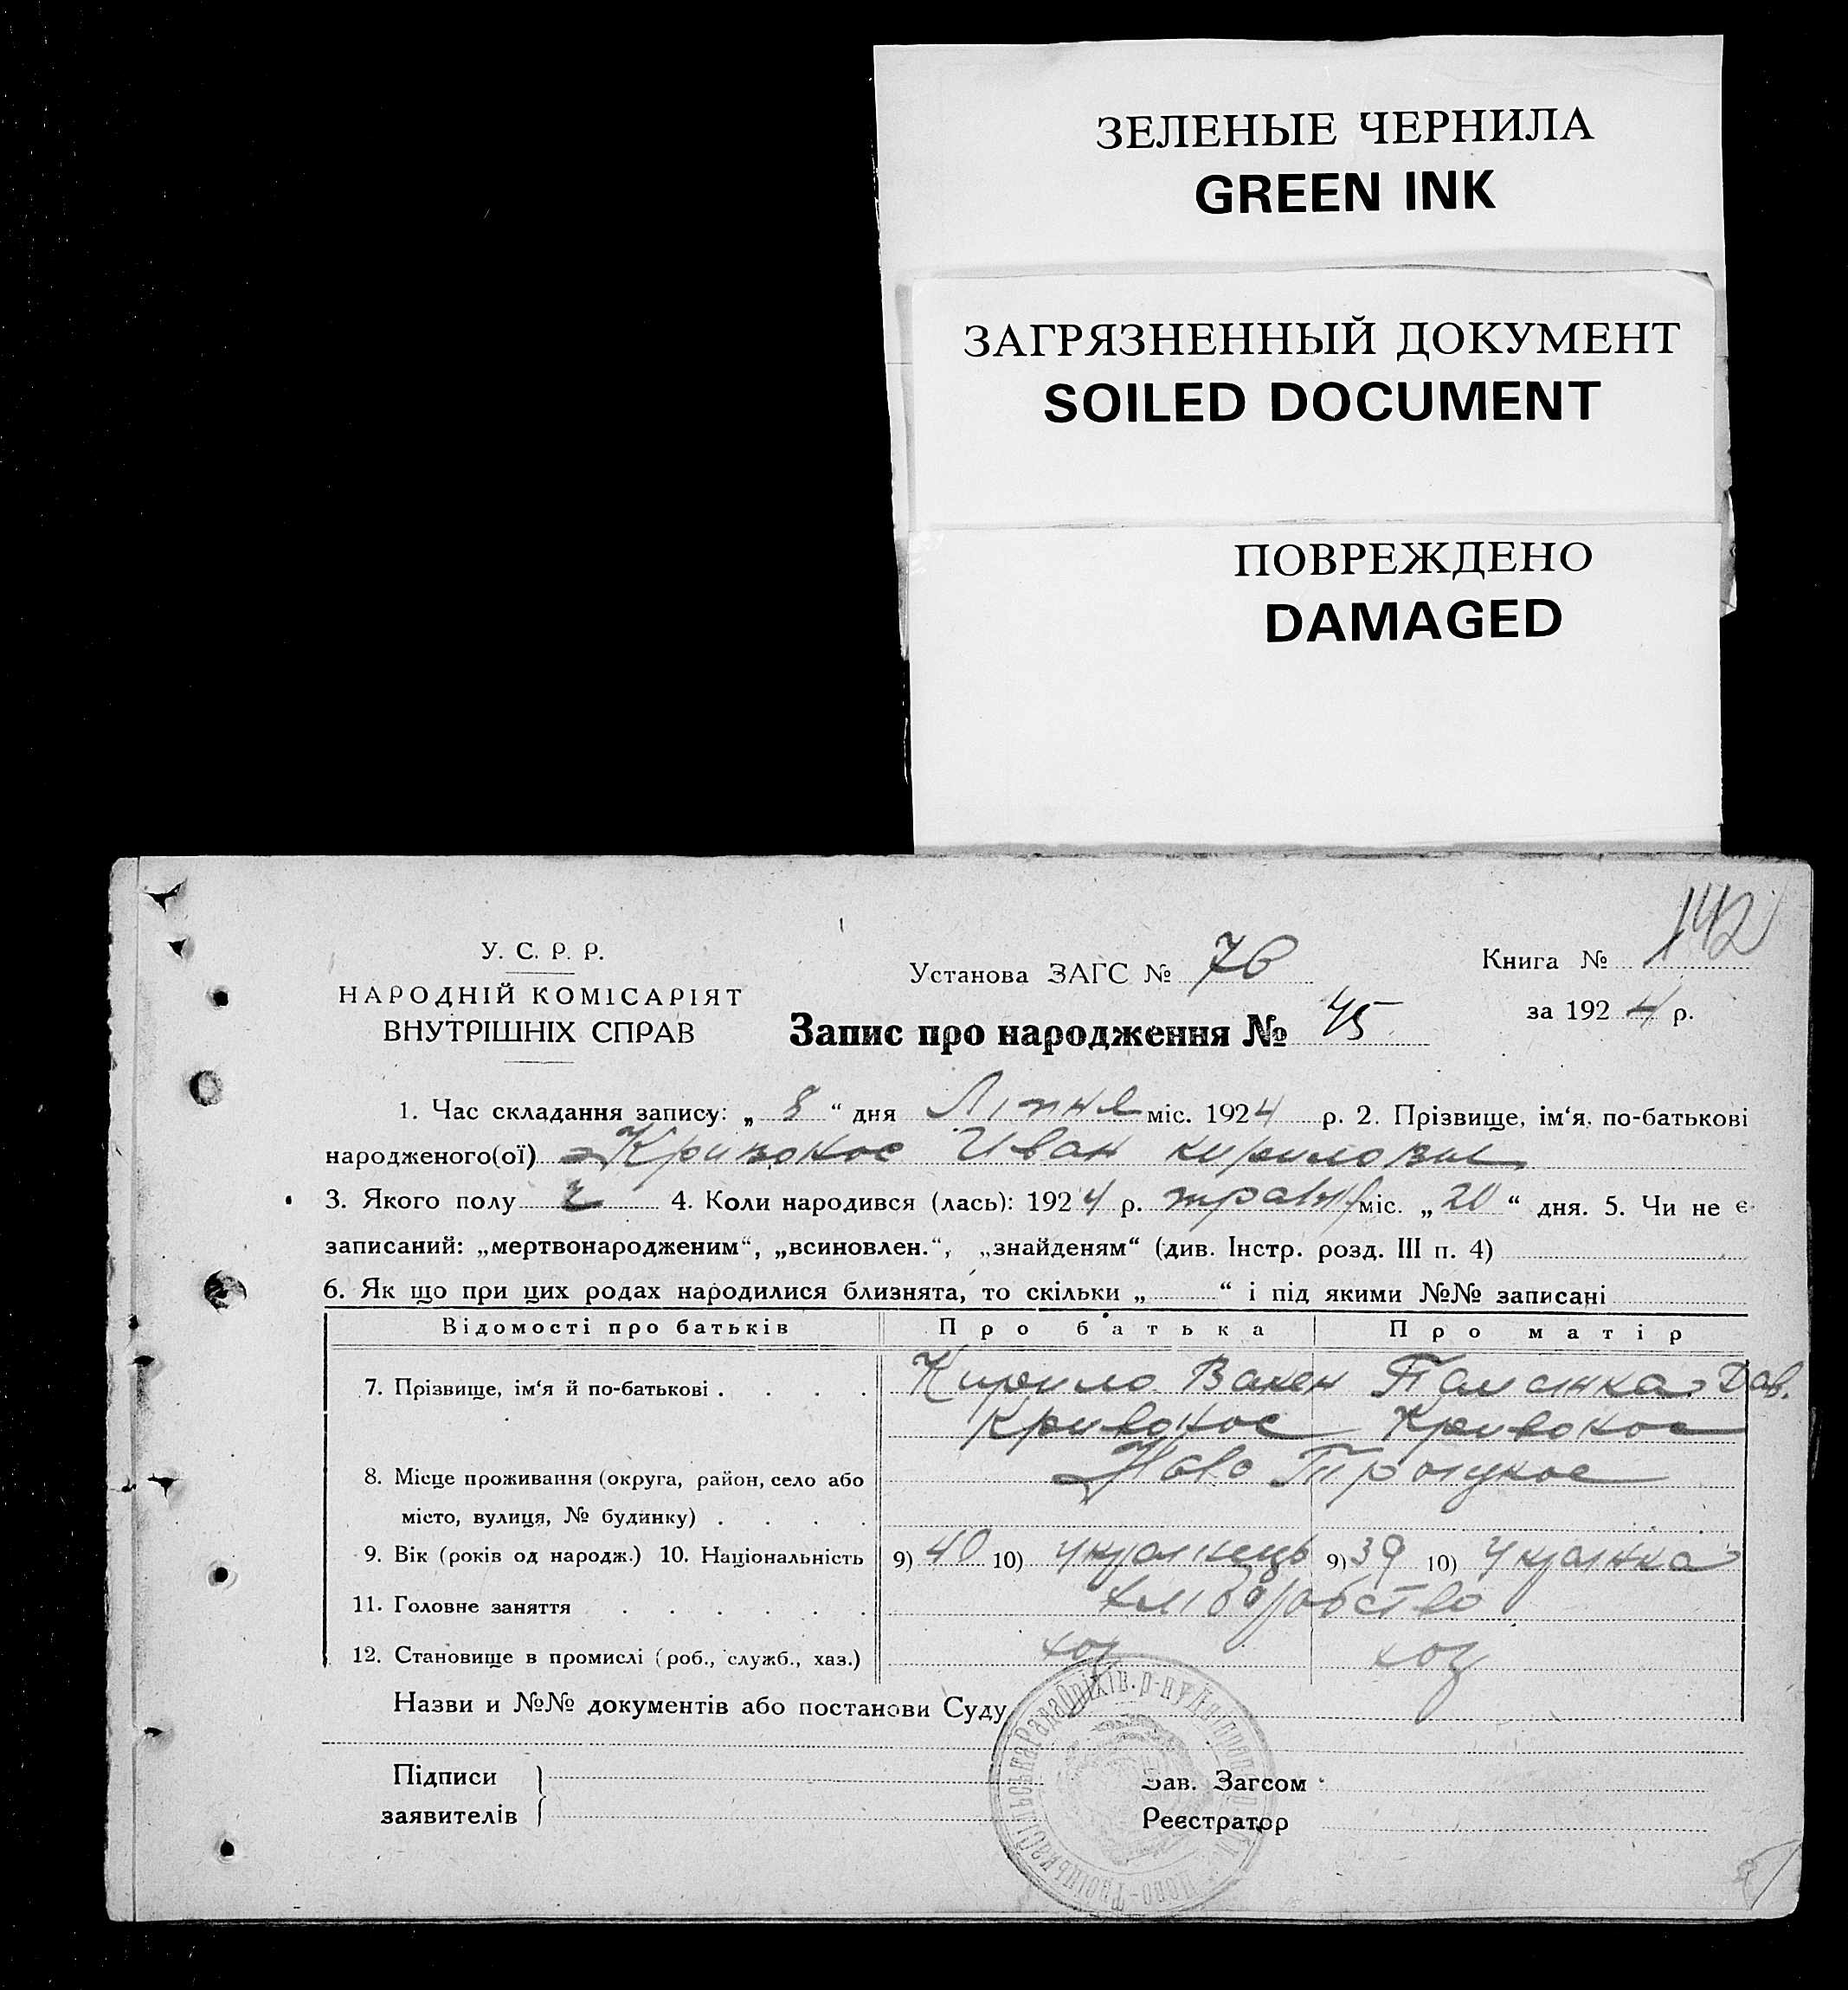 ЗЕЛЕНЫЕ ЧЕРНИЛА
GREEN INK
ЗАГРЯЗНЕННЫЙ ДОКУМЕНТ
SOILED DOCUMENT
ПОВРЕЖДЕНО
DAMAGED
142
У. С. Р. Р.
НАРОДНІЙ КОМІСАРІЯТ
ВНУТРІШНІХ СПРАВ
Установа ЗАГС № 76
Книга №
за 1924 р.
Запис про народження № 45
1. Час складання запису: „ 8 “ дня Липня міс. 1924 р. 2. Прізвище, ім‘я, по-батькові
народженого(ої) Кривонос Иван Кирилович
3. Якого полу ч 4. Коли народився (лась): 1924 р. травня міс. „ 20 “ дня. 5. Чи не є
записаний: „мертвонародженим“, „всиновлен.“, „знайденям“ (див. Інстр. розд. III п. 4)
6. Як що при цих родах народилися близнята, то скільки „ “ і під якими №№ записані
Відомості про батьків Про батька Про матір
7. Прізвище, ім‘я й по-батькові Кирило Дав.
Кривонос Кривонос
8. Місце проживання (округа, район, село або Ново Троицкое
місто, вулиця, № будинку)
9. Вік (років од народж.) 10. Національність 9) 40 10) украінець 9) 39 10) украінка
11. Головне заняття хліборобство
12. Становище в промислі (роб., служб., хаз.) хоз хоз
Назви и №№ документів або постанови Суду
Підписи
заявителів
Зав. Загсом
Реєстратор
Ново-Троіцька Сільська Рада Оріхів. р-ну